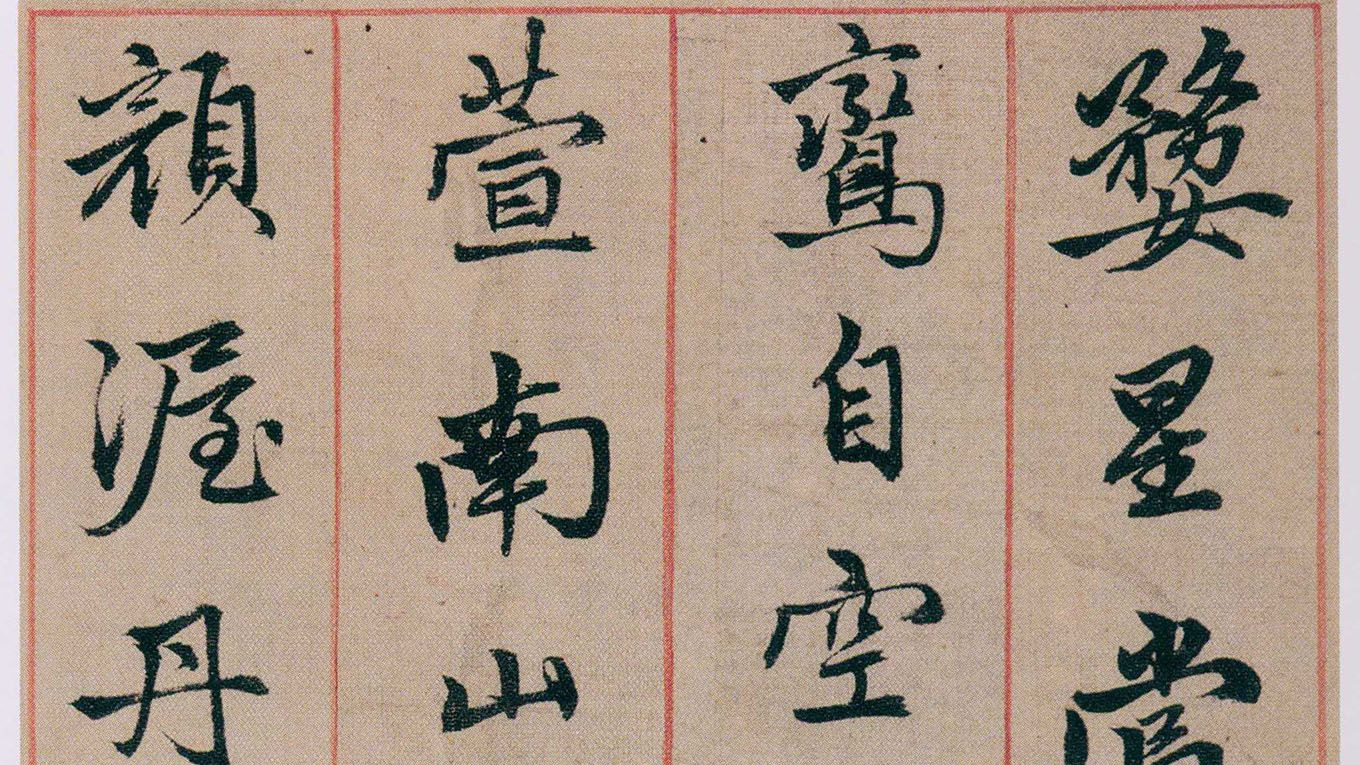 婺星當
鸞自空
萱南山
顏渥丹